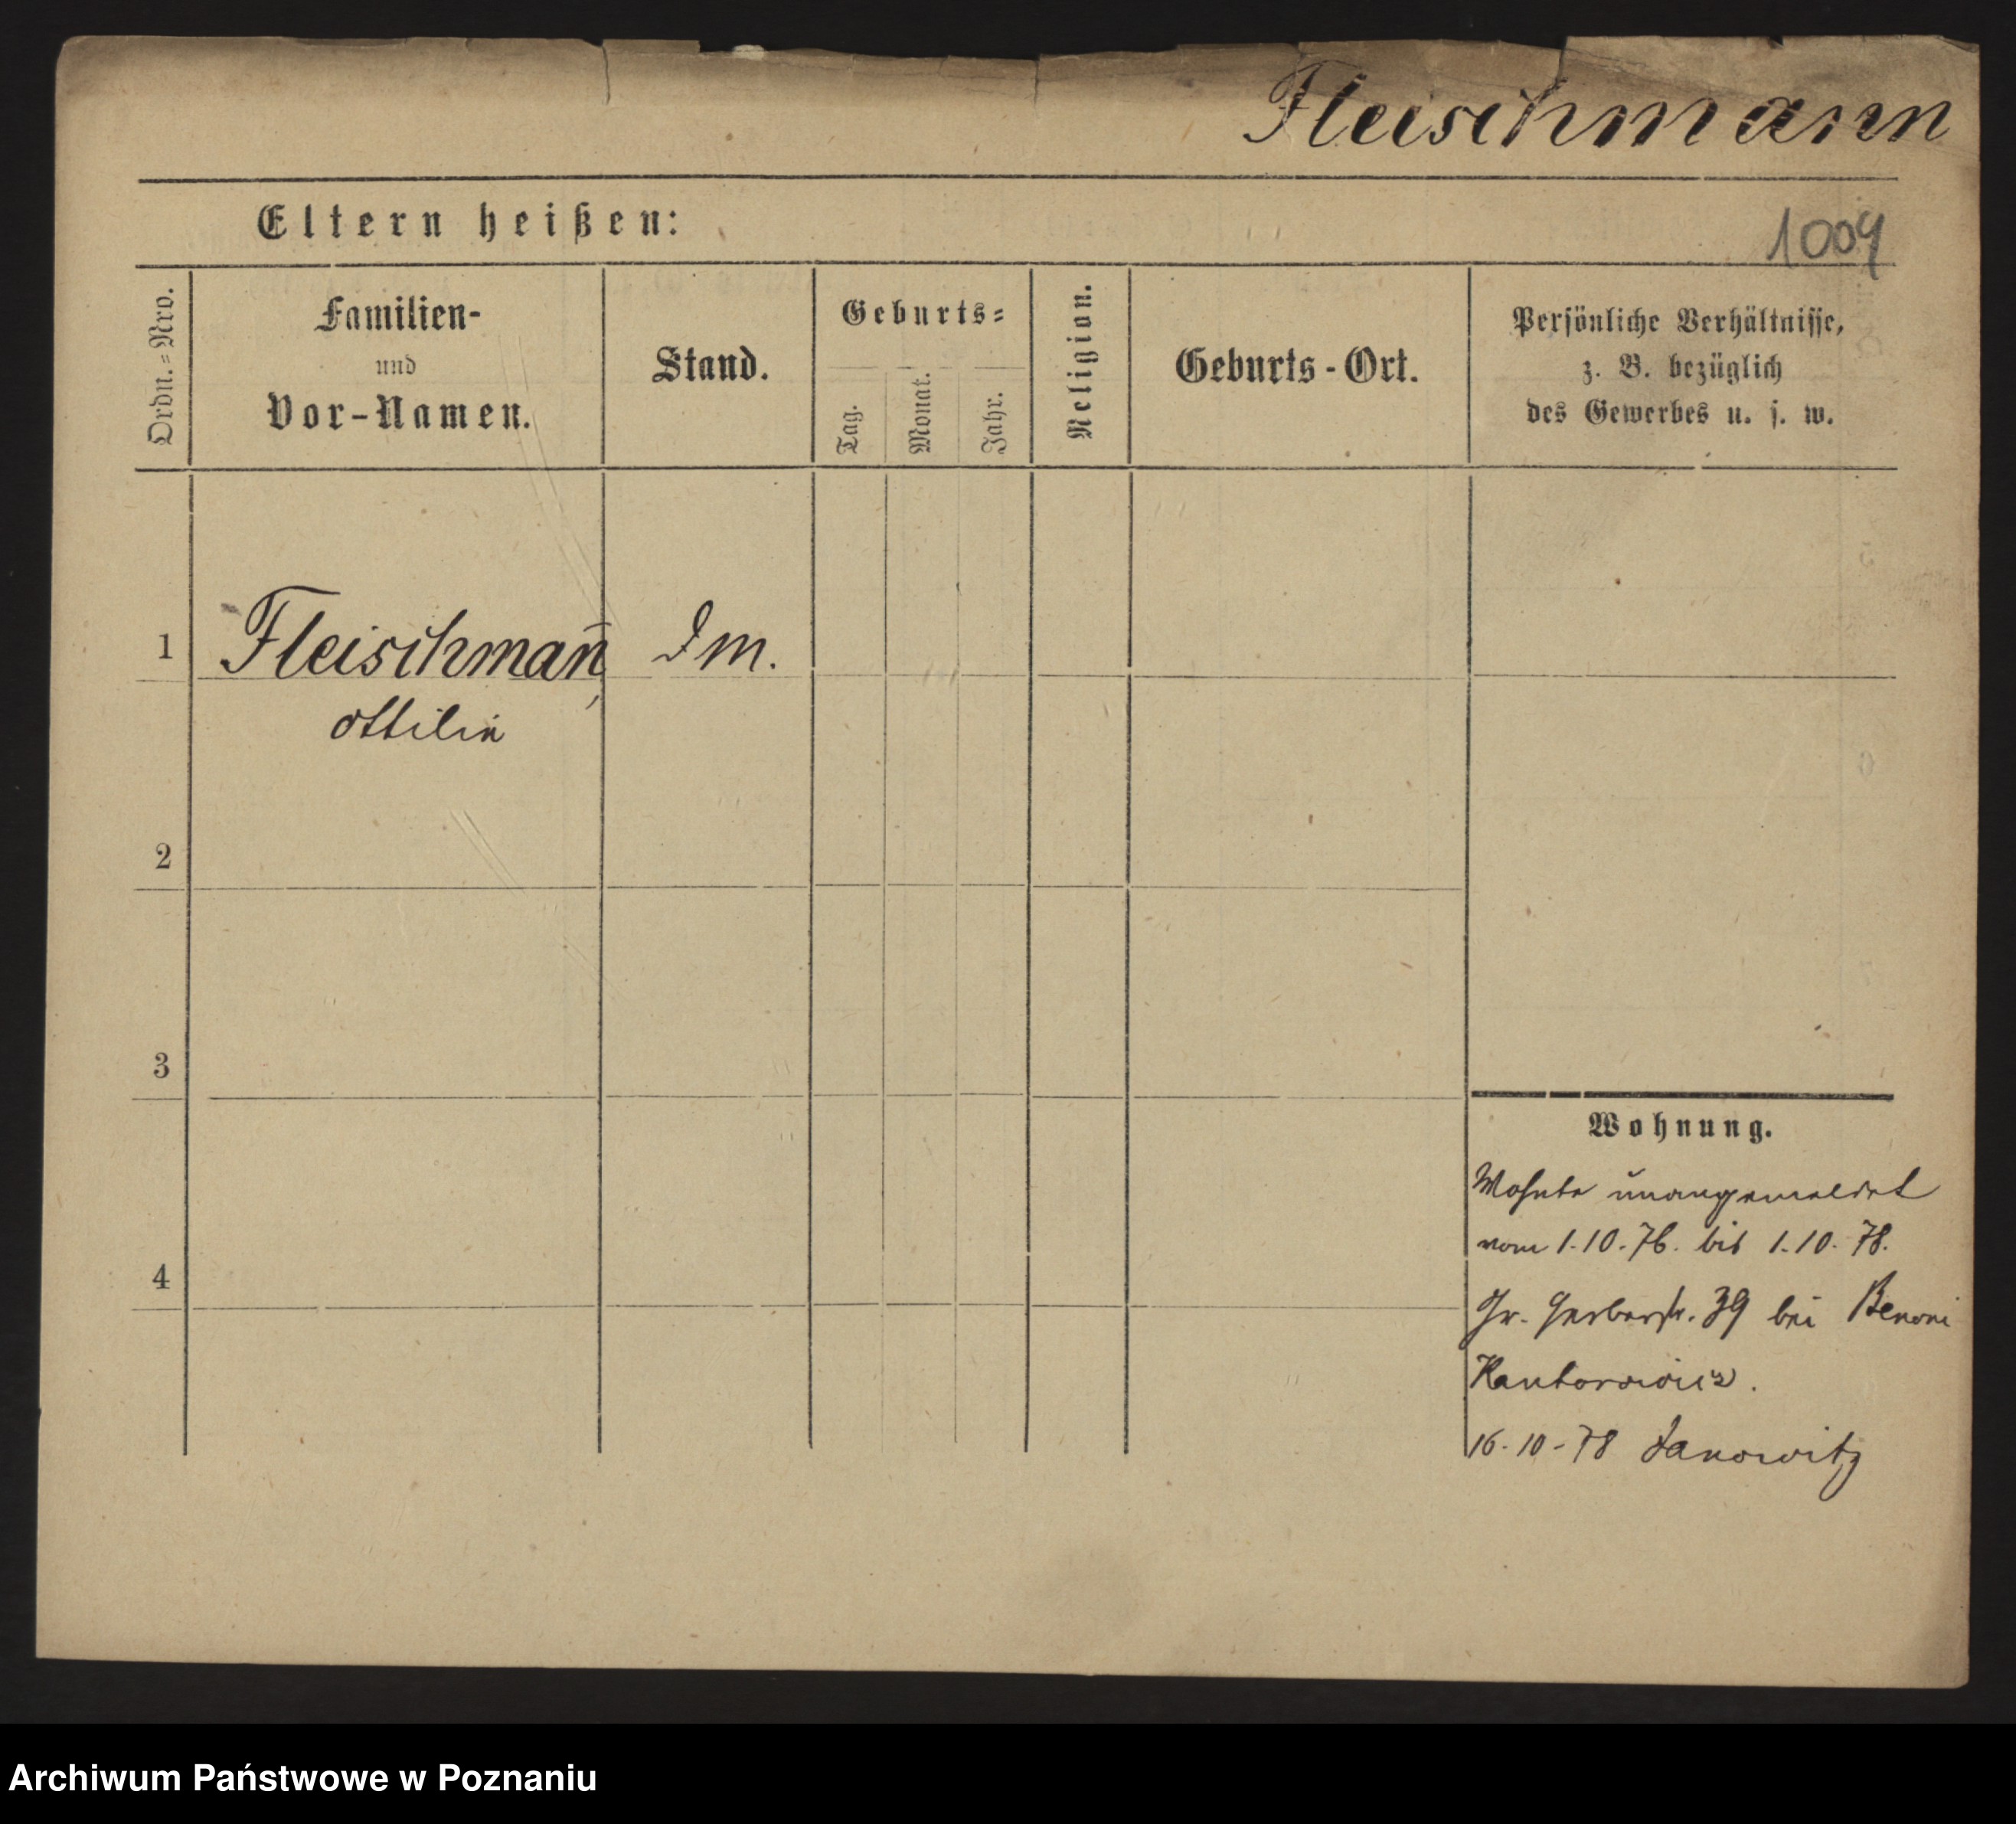 Fleischmann
Eltern heißen:
1009
Ordn.=Nro.
Familien-
und
Vor-Namen.
Stand.
Geburts=
Tag.
Monat.
Jahr.
Religion.
Geburts-Ort.
Persönliche Verhältnisse,
z. B. bezüglich
des Gewerbes u. s. w.
1
Fleischman̅,
Dm.
Ottilie
2
3
4
Wohnung.
Wohnte unangemeldet
vom 1.10.76. bis 1.10.78.
Gr. Gerberstr. 39 bei Benoni
Kantorowicz.
16.10-78 Janowitz
Archiwum Państwowe w Poznaniu